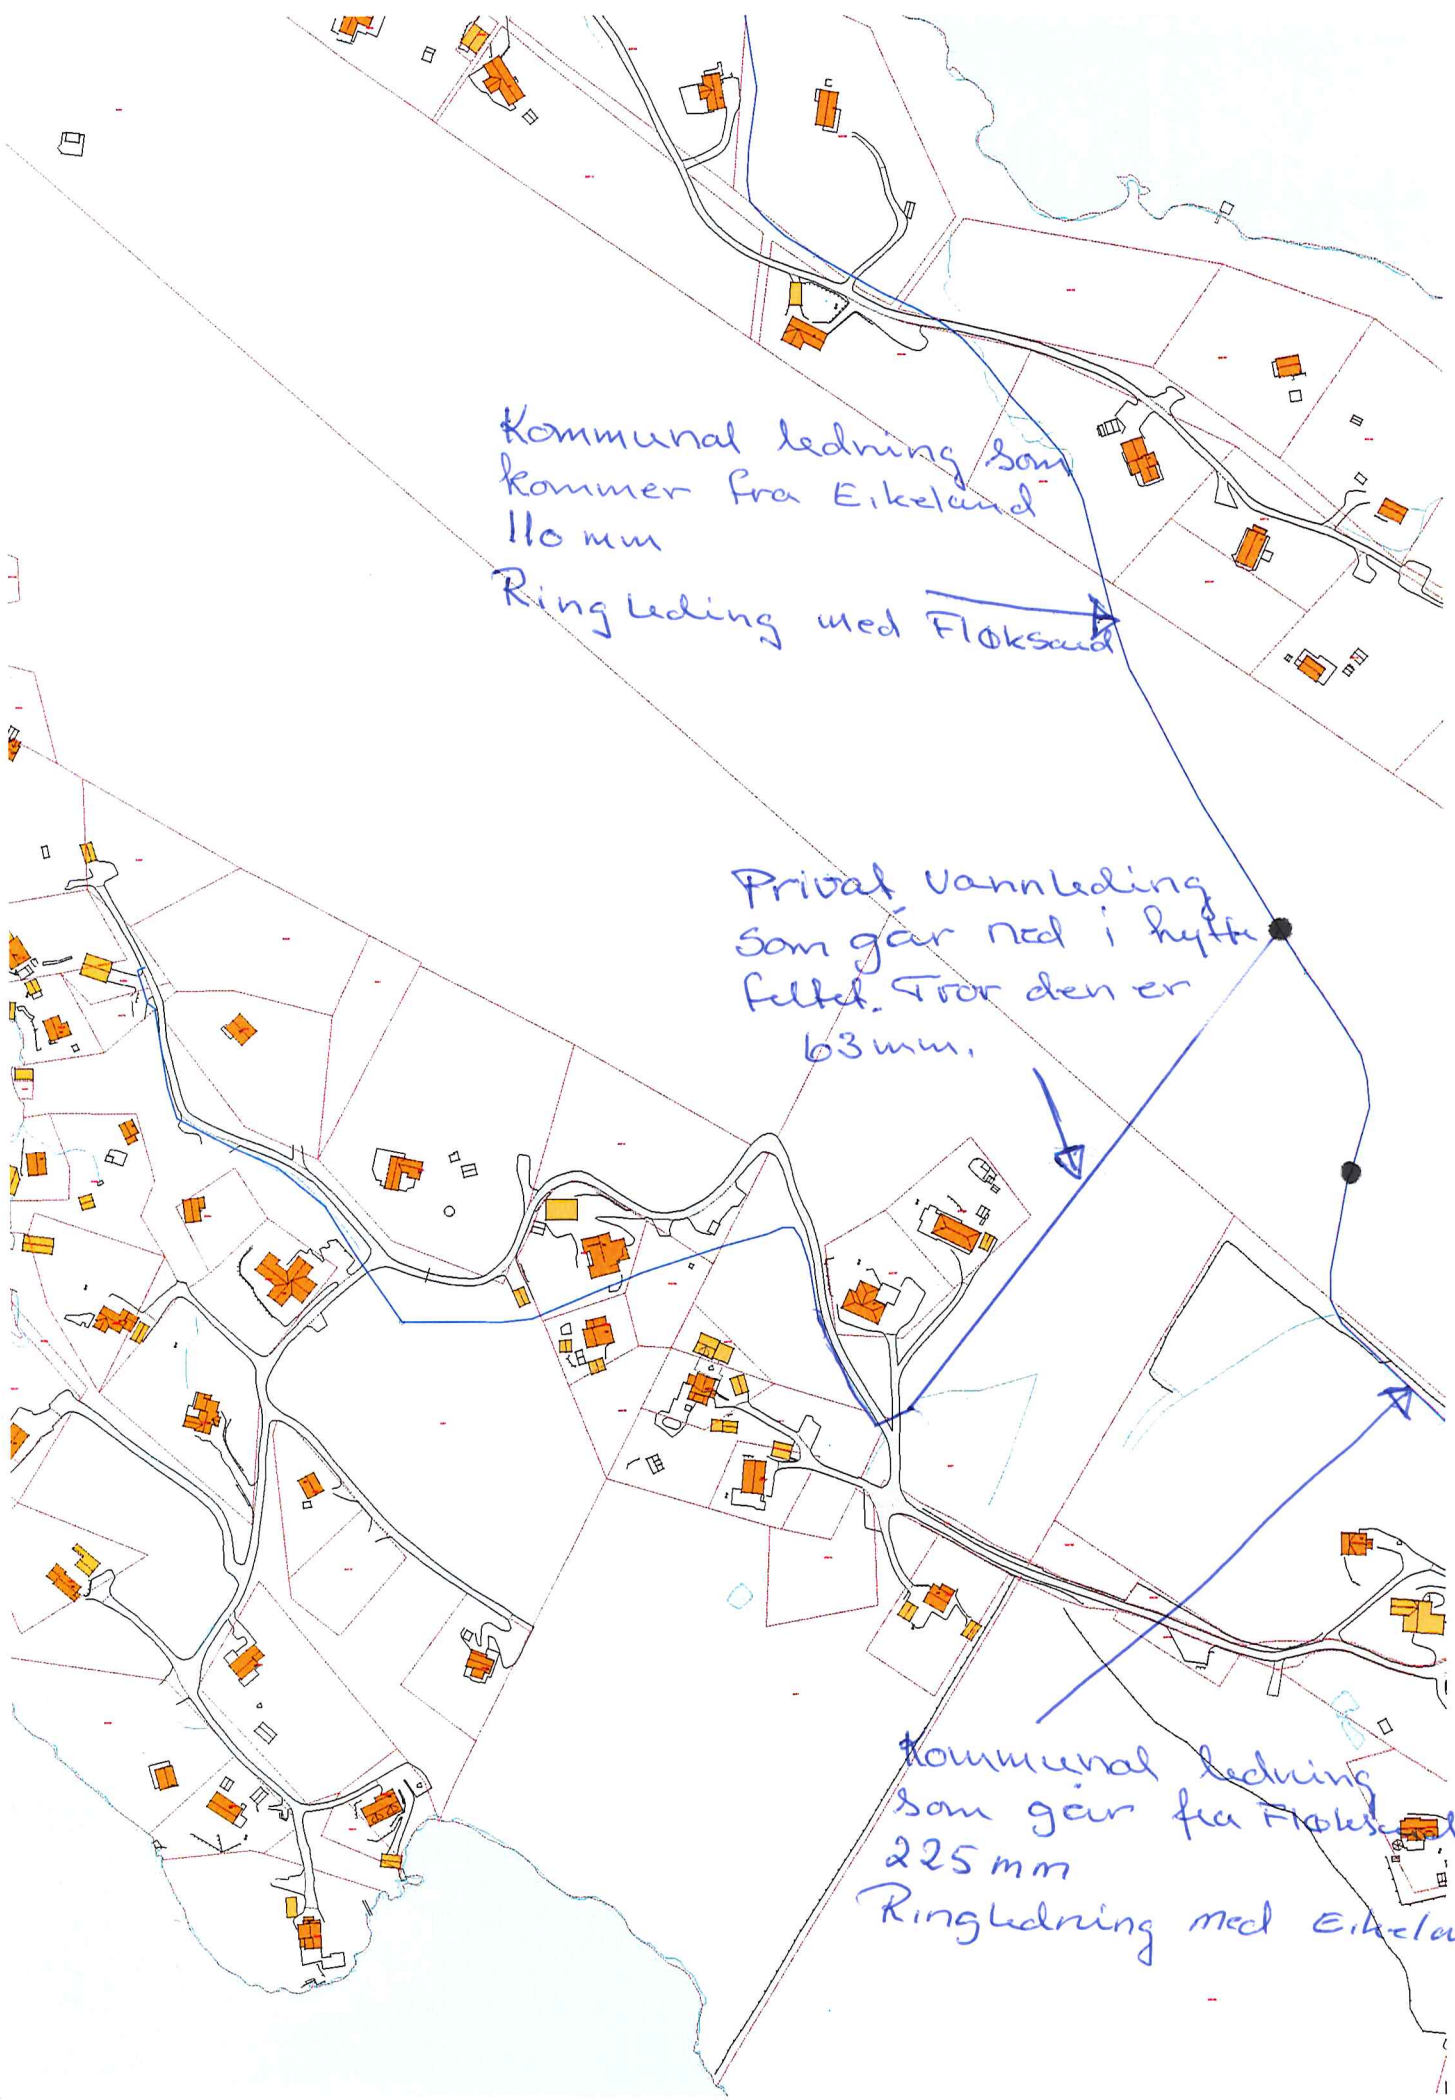 Kommunal ledning som
kommer fra Eikeland
110 mm
Ringleding med Fløksand
Privat vannleding
som går ned i hytte
feltet. Tror den er
63 mm.
Kommunal ledning
som går fra Fløksand
225 mm
Ringledning med Eikela